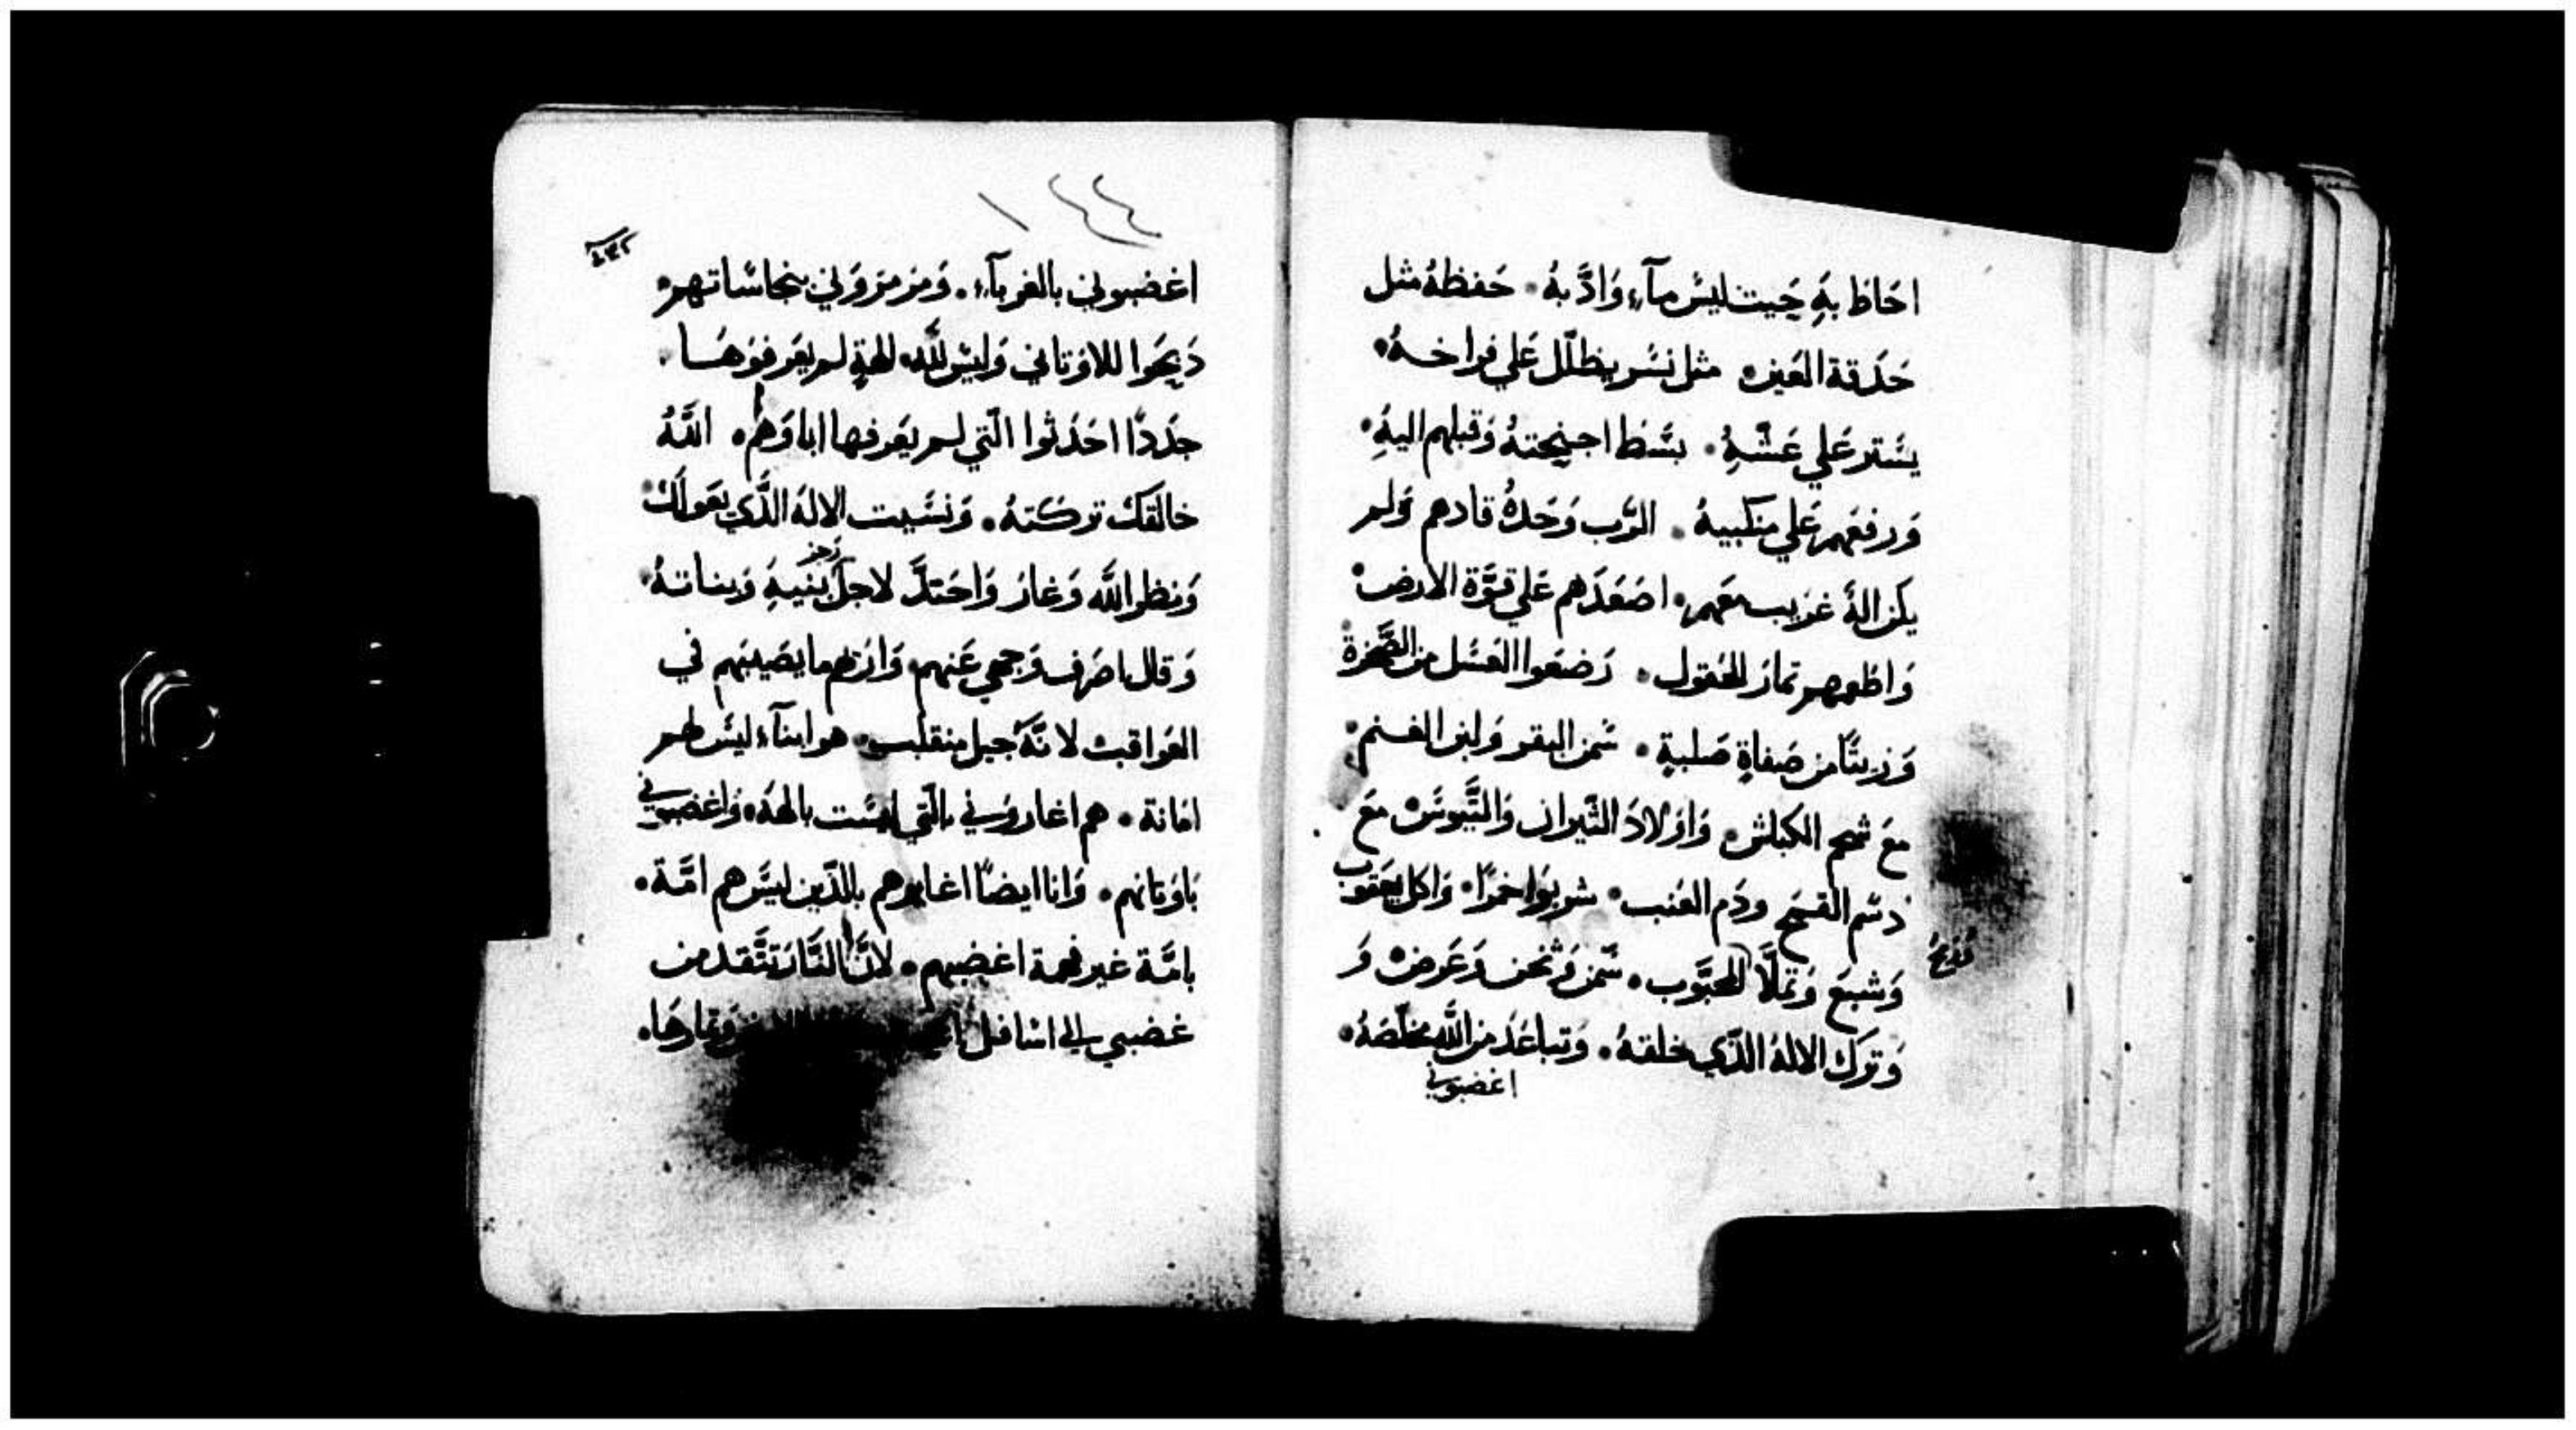 احَاط بهِ حَيت ليسَ مآءٍ وَادَّبهُ • حَفظهُ مثل
حَدَقة العَين • مثل نسَر يظلّل عَلي فراخهُ •
يسَتر عَلي عَشّهِ • بسَط اجنحِتهُ وَقبلهم اليهِ •
وَرفعَهم عَلي منكبيهُ • الرَّب وَحَدهُ قادهم وَلم
يكن الهٌ غرَيب معَهم • اصَعَدَهم عَلي قوَّة الارض •
وَاطعمهم ثمارَ الحَقول • رَضعَوا العَسَل من الصَّخرة
وَزيتًا من صَفاةٍ صَلبةٍ • سَمن البقر وَلبن الغنم •
معَ شحم الكباش • وَاوَلادَ الثّيران وَالتّيوسَ معَ
دسَم القمح ودَم العَنب • شربوَا خمرًا • وَاكل يعَقوب
وَشبعَ وَتملّا المحَبَّوب • سَمن وَثخن وَعَرض • وَ
وَتركَ الالهُ الذّي خلقهُ • وَتباعَدَ من اللّه مخلّصَهُ •
اغضبوني
١٤٤
اغضبوني بالغربآءِ • وَمرمرَوَني بنجاسَاتهم •
ذبحَوا للاوَثان وَليسَ للّه • لالهةٍ لم يعَرفوَهَا •
جدَدًا احَدَثوا الّتي لم يعَرفها اباوَهم • اللّهُ
خالقكَ تركتهُ • وَنسَيت الالهَ الذَّي يعَولكَ •
وَنظر اللّه وَغارَ وَاحَتدَّ لاجل رَجز بنيهِ وَبناتهُ •
وَقال اصَرف وَجهي عَنهم • وَارَيهم ما يصَيبهم في
العَواقب • لانّهُ جيل منقلب • هم ابنآء ليسَ لهم
امَانة • هم اغارَوني بالّتي ليسَت بالهة • وَاغضبوني
باوَثانهم • وَانا ايضًا اغايرهم بالذّين ليسَ هم امَّة •
بامَّة غير فهمة اغضبهم • لانَّ النَّارَ تتَّقد من
غضبي الي اسَافل وَثمارَهَا •